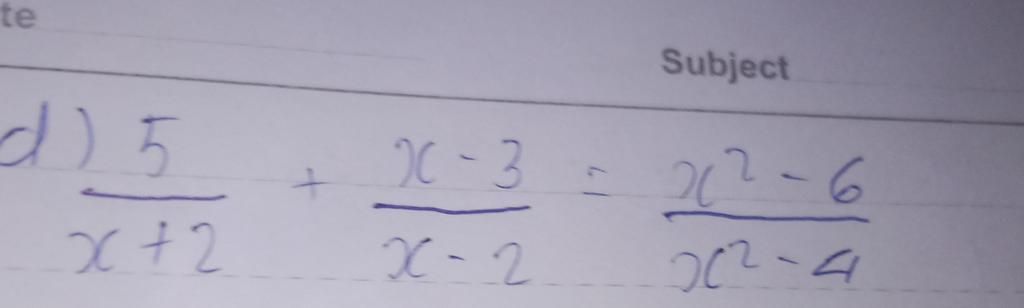 te
Subject
d) 5/(x+2) + (x-3)/(x-2) = (x²-6)/(x²-4)